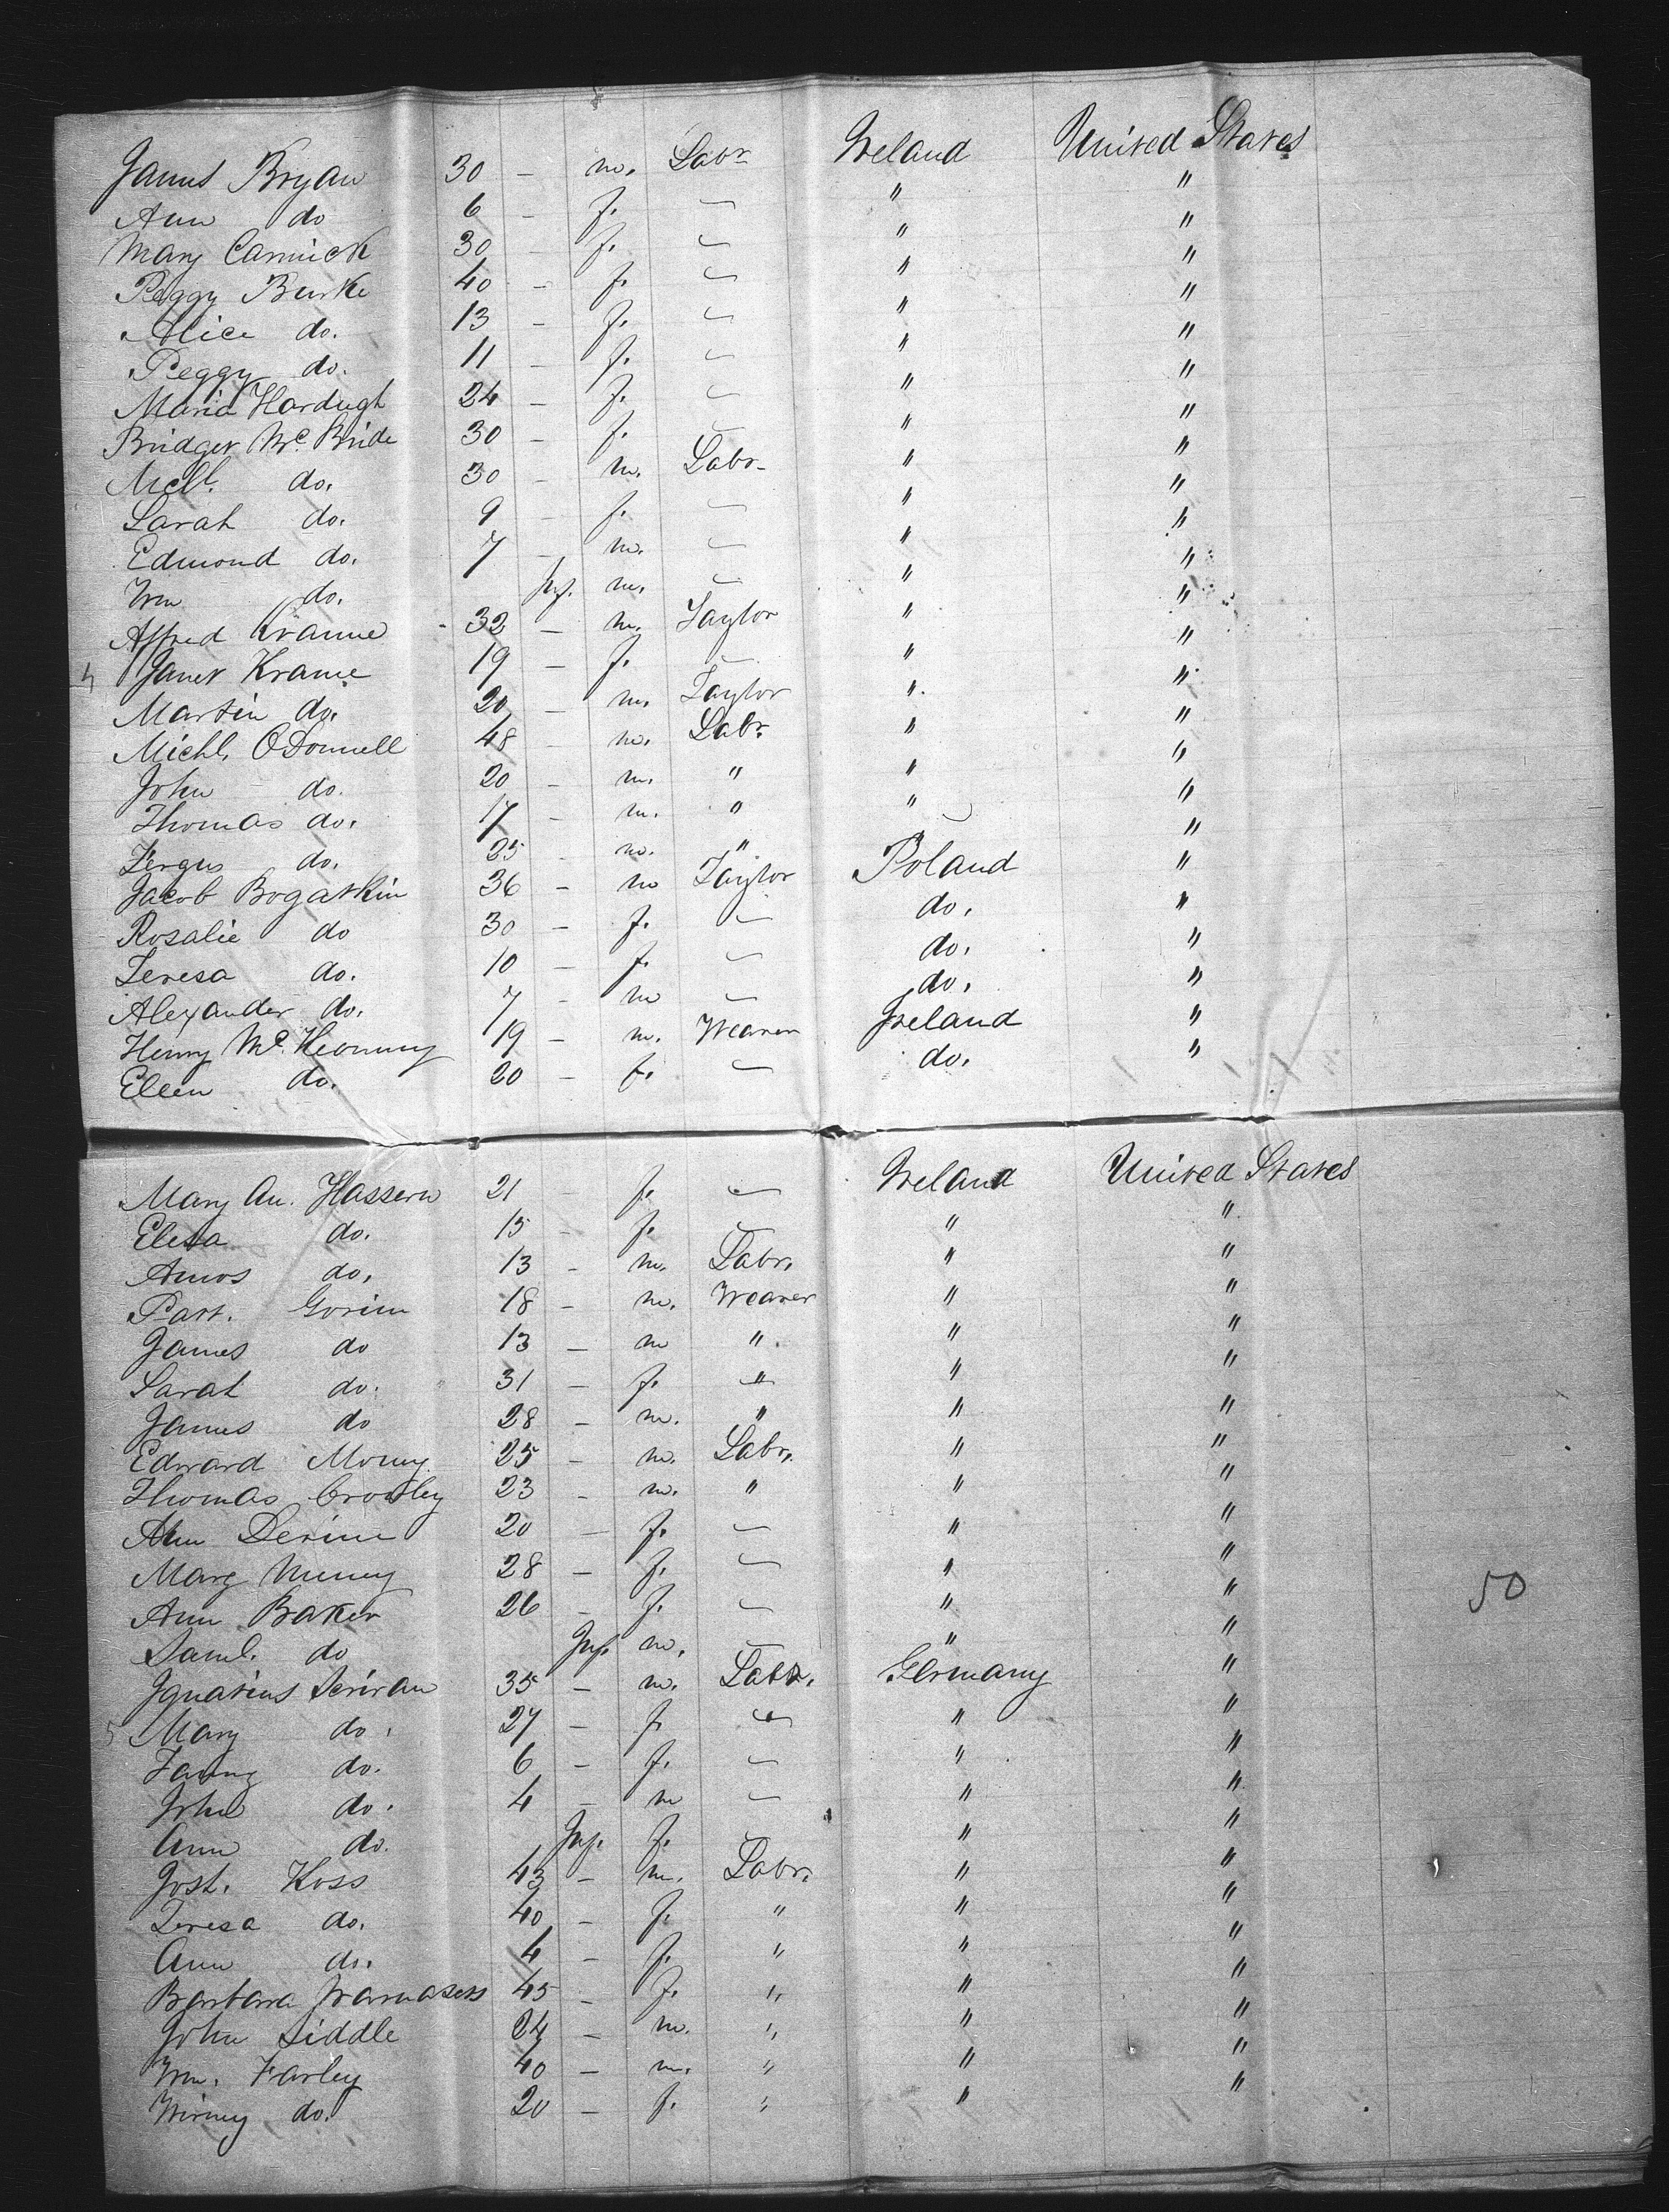 James Bryan 30 - m. Labr Ireland United States
Ann do 6 - f. — " "
Mary Carmick 30 - f. — " "
Peggy Burke 40 - f. — " "
Alice do. 13 - f. — " "
Peggy do. 11 - f. — " "
Maria Hardugh 24 - f. — " "
Bridget Mc. Bride 30 - f. — " "
Michl. do. 30 - m. Labr " "
Sarah do. 9 - f. — " "
Edmond do. 7 - m. — " "
Wm do. Inf. m. — " "
Alfred Kranne 32 - m. Taylor " "
Janet Krame 19 - f. — " "
Martin do. 20 - m. Taylor " "
Michl. O'Donnell 48 - m. Labr. " "
John do. 20 - m. " " "
Thomas do. 17 - m. " " "
Fergus do. 25 - m. " " "
Jacob Bogatkin 36 - m Taylor Poland "
Rosalie do 30 - f. — do. "
Teresa do. 10 - f. — do. "
Alexander do. 7 - m — do. "
Henry Mc. 19 - m. Weaver Ireland "
Ellen do. 20 - f. — do. "
Mary An. Hassern 21 - f. — Ireland United States
Elisa do. 15 - f. — " "
Amos do. 13 - m. Labr. " "
Patt. Gorim 18 - m. Weaver " "
James do 13 - m " " "
Sarah do. 31 - f. " " "
James do 28 - m. " " "
Edward 25 - m. Labr. " "
Thomas Crossley 23 - m. " " "
Ann Derim 20 - f. — " "
Marg 28 - f. — " "
Ann Baker 26 - f. — " "
Saml. do Inf. m. — " "
Ignatius Scrivan 35 - m. Labr. Germany "
5 Mary do. 27 - f. — " "
Fanny do. 6 - f. — " "
John do. 4 - m — " "
Ann do. Inf. f. — " "
Josh. Koss 43 - m. Labr. " "
Teresa do. 40 - f. " " "
Ann do. 4 - f. " " "
Barbara 45 - f. " " "
John Siddle 24 - m. " " "
Wm. Farley 40 - m. " " "
Winny do. 20 - f. " " "
50